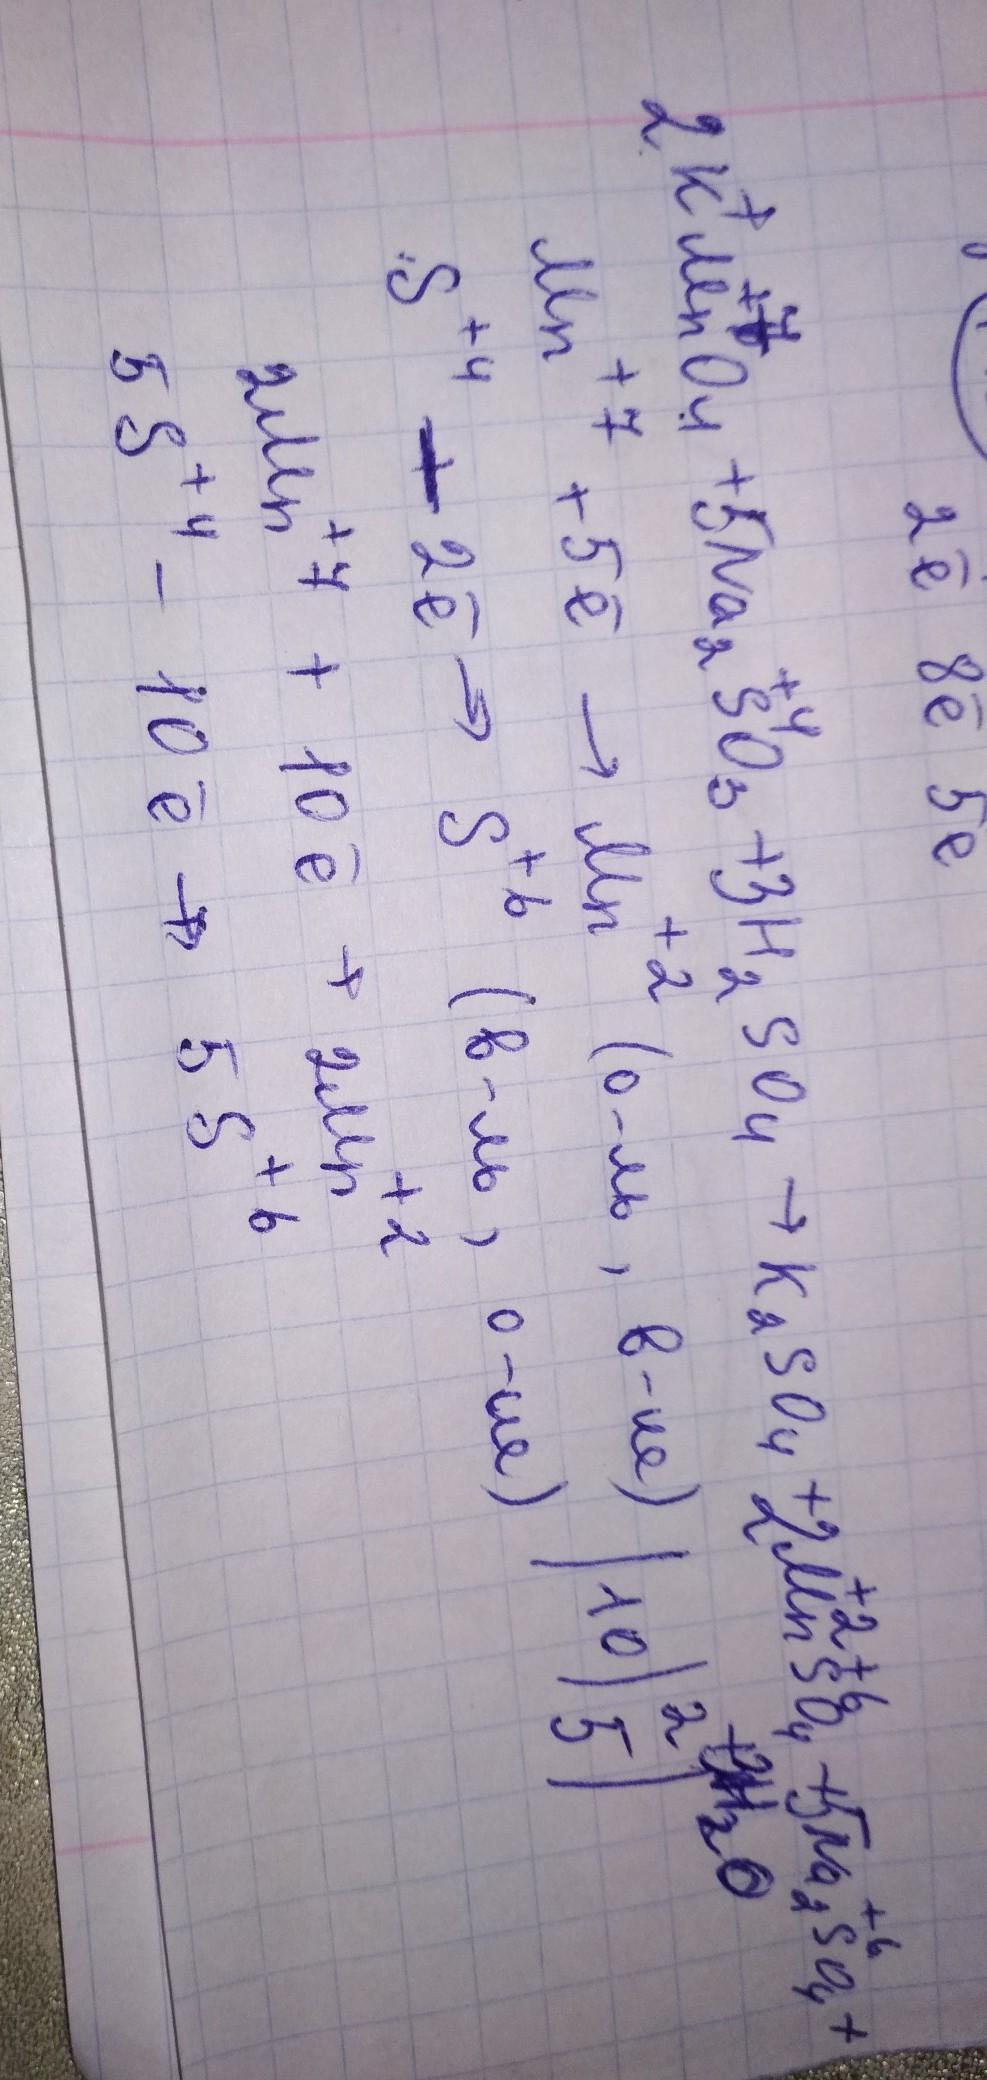 2ē 8ē 5e
2K⁺Mn⁺⁷O₄ + 5Na₂S⁺⁴O₃ + 3H₂SO₄ → K₂SO₄ + 2Mn⁺²S⁺⁶O₄ + 5Na₂S⁺⁶O₄ +
H₂O
Mn⁺⁷ + 5ē → Mn⁺² (о-ль, в-ие) | 10 | 2
S⁺⁴ - 2ē → S⁺⁶ (в-ль, о-ие) | 5 |
2Mn⁺⁷ + 10ē → 2Mn⁺²
5S⁺⁴ - 10ē → 5S⁺⁶